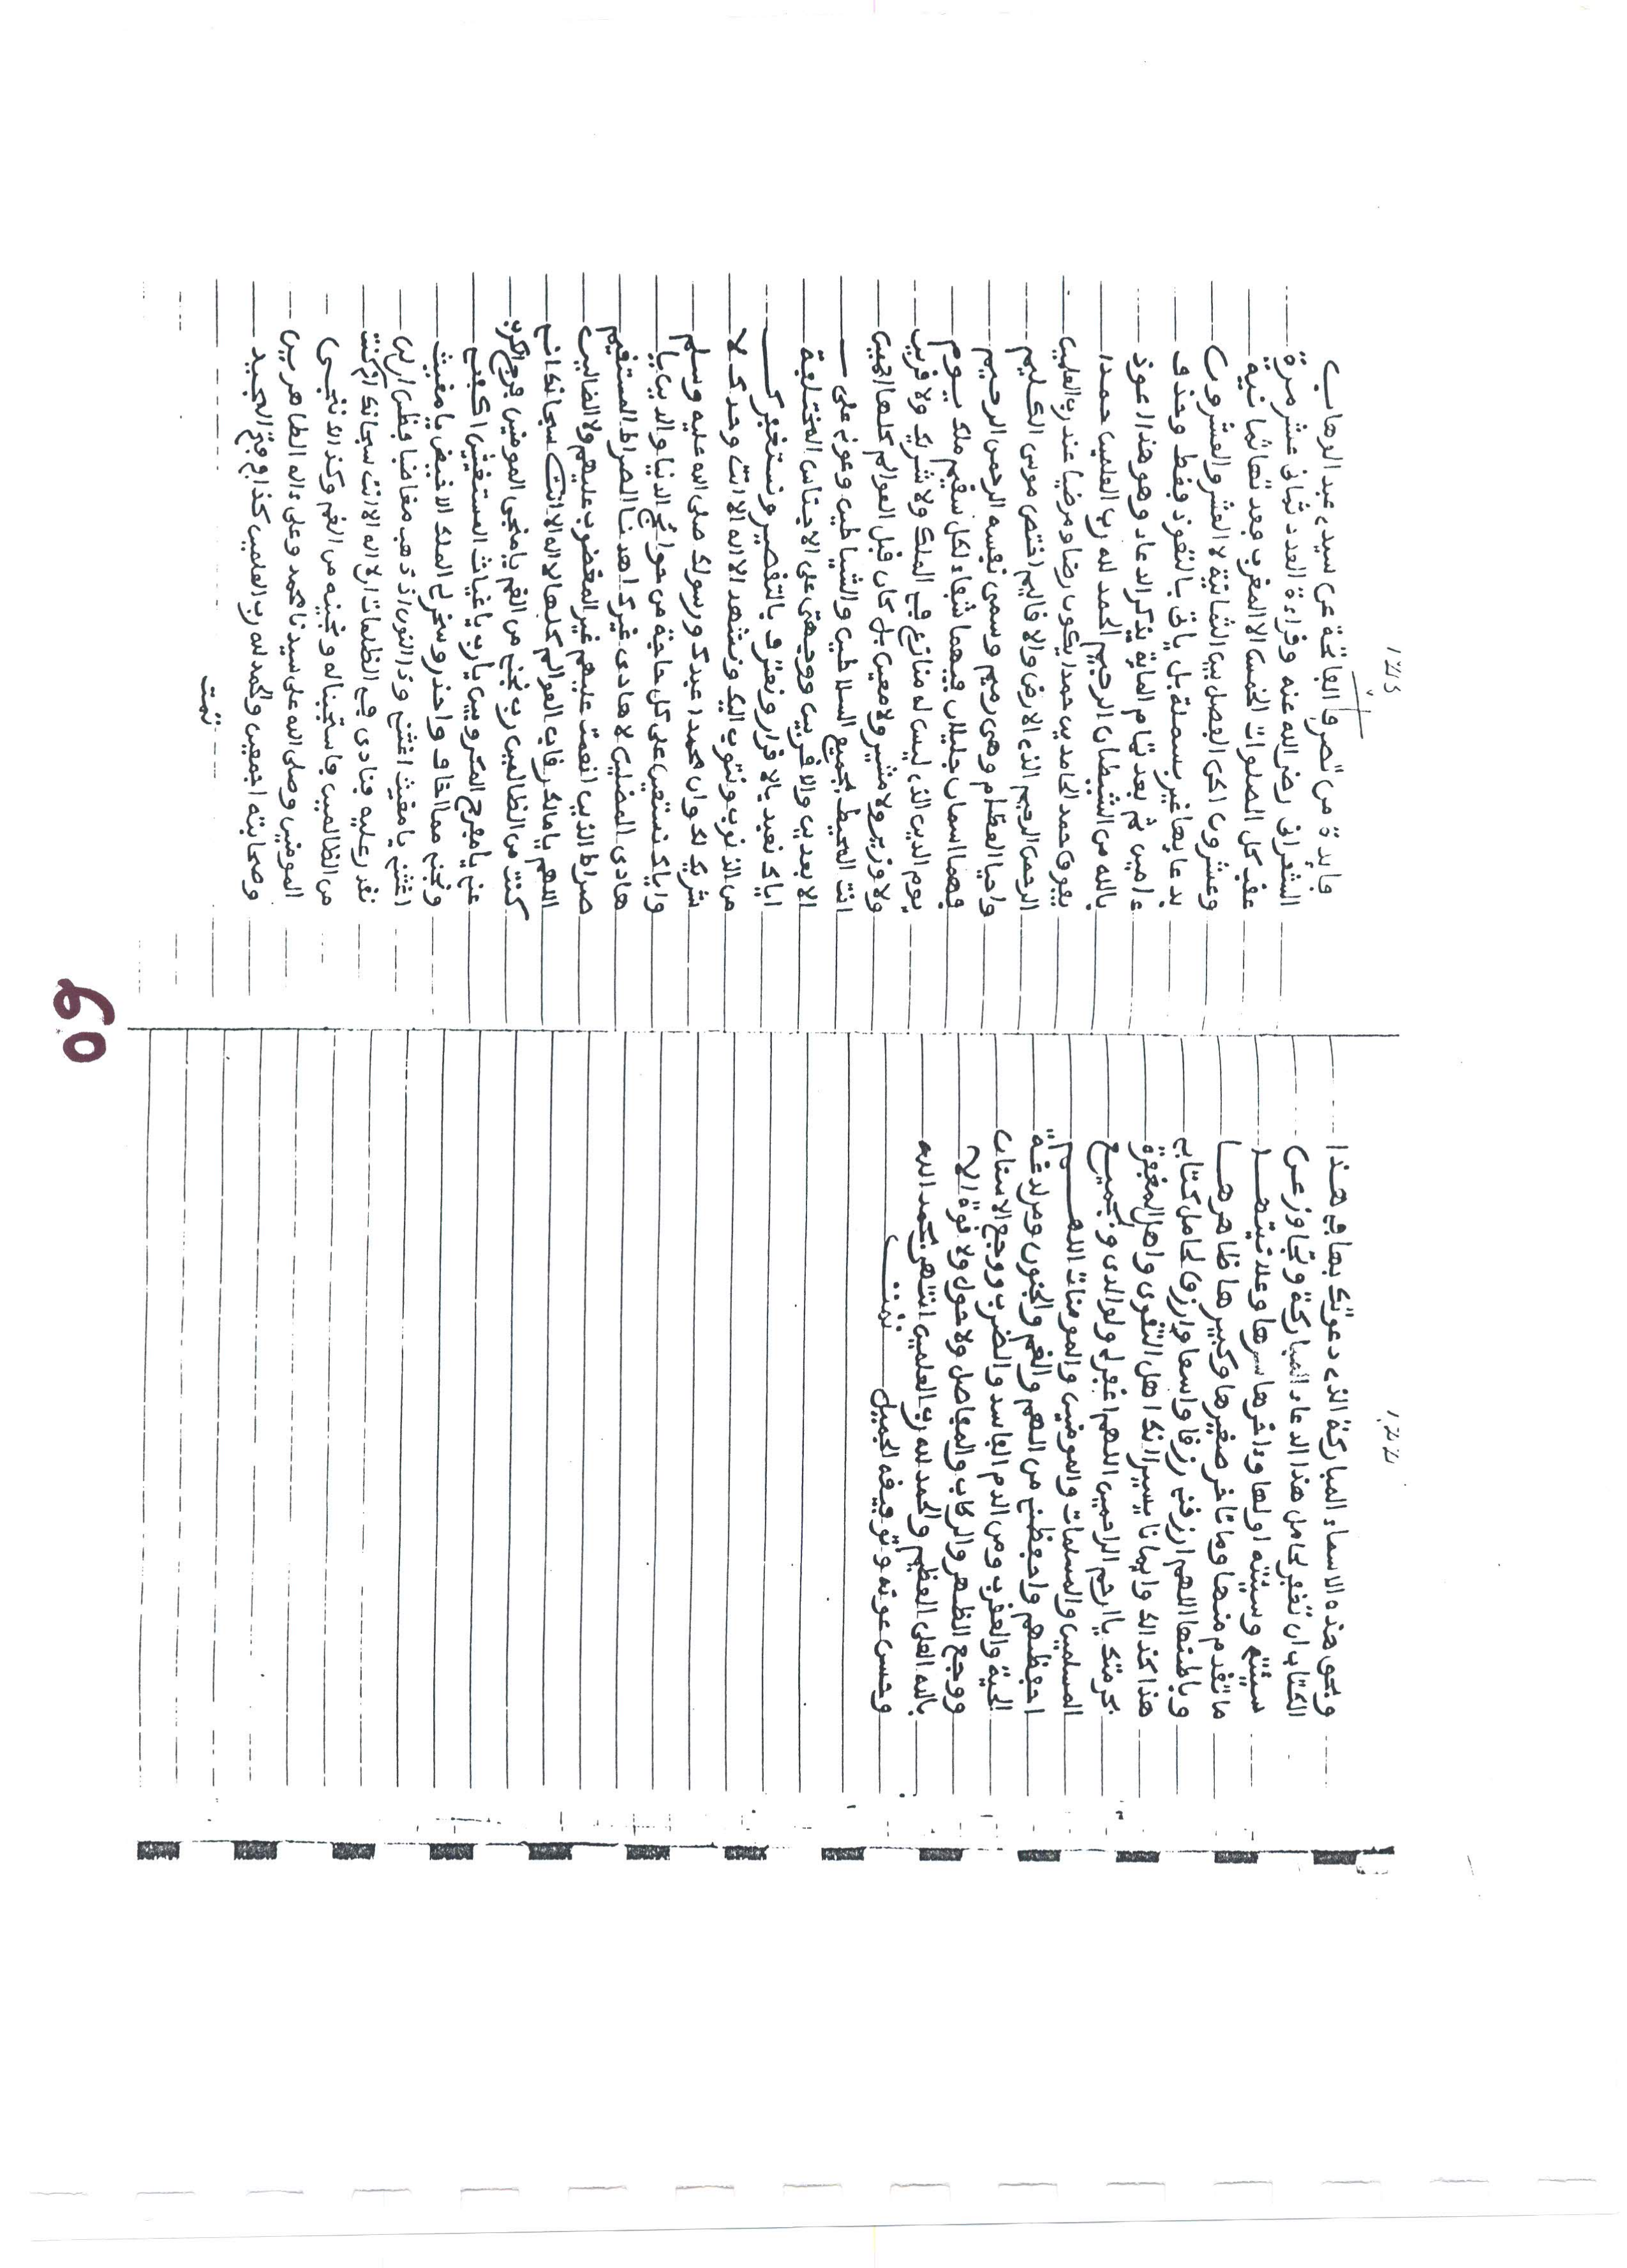 وبحق هذه الاسماء المباركة الذي دعوتك بها في هذا
الكتاب ان تغفر لحامل هذا الدعاء المباركة وتجاوز عن
سيئته وسيئته اولها وءاخرها سرها وعلانيتها
ما تقدم منها وما تاخر صغيرها وكبيرها ظاهرها
وباطنها اللهم ارزقني رزقا واسعا وارزق لحامل كتابه
هذا كذالك وايمانا يسيرا انك اهل التقوى واهل المغفرة
بحرمتك يا ارحم الراحمين اللهم اغفر لي ولوالدي ولجميع
المسلمين والمسلمات والمومنين والمومنات اللهم
احفظهم واحفظني من الهم والغم والجنون ومن لدغة
الحية والعقرب ومن الدم الفاسد والضرب ووجع الاسنان
ووجع الظهر والركاب والمفاصل ولا حول ولا قوة الا
بالله العلي العظيم والحمد لله رب العلمين انتهى بحمد الله
وحسن عونه وتوفيقه الجميل
تمت
فايدة من تصرف الفاتحة عن سيدي عبد الوهاب
الشعراني رضي الله عنه وقراءة العدد ثماني عشر مرة
عقب كل الصلوات الخمس الا المغرب فعد تها ثمانية
وعشرون لكن الفصل بين الثمانية لا العشر والعشرون
بدعايها غير بسملة بل ياتي بالتعوذ فقط وحذف
ءامين ثم بعد تمام الماية يذكر الدعاء وهو هذا اعوذ
بالله من الشيطان الرجيم الحمد لله رب العلمين حمدا
يفوق حمد الحامدين حمدا يكون رضا ومرضيا عند رب العلمين
الرحمن الرحيم الذي الارض والاقاليم اختص موسى الكليم
واحيا العظام وهي رميم وسمى نفسه الرحمن الرحيم
فهما اسمان جليلان فيهما شفاء لكل سقيم ملك يوم
يوم الدين الذي ليس له منازع في الملك ولا شريك ولا قرين
ولا وزير ولا مشير ولا معين بل كان قبل العوالم كلها اجمعين
انت المحيط بجميع السلاطين والشياطين وعوني على
الابعدين والاقربين ووجهتي على الاجناس المختلفة
اياك نعبد بالاقرار ونعترف بالتقصير ونستغفرك
من الذنوب ونتوب اليك ونشهد الا اله الا انت وحدك لا
شريك لك وان محمدا عبدك ورسولك صلى الله عليه وسلم
واياك نستعين على كل حاجة من حوائج الدنيا والدين يا
هادي المضلين لا هادي غيرك اهدنا الصراط المستقيم
صراط الذين انعمت عليهم غير المغضوب عليهم ولا الضالين
اللهم يا مالك رقاب العوالم كلها لا اله الا انت سبحانك اني
كنت من الظالمين رب نجني من الغم يا منجي المومنين فرج الكرب
عني يا مفرج المكروبين يا رب يا غياث المستغيثين اكفني
ونجني مما اخاف واحذر وسخر لي الملك الافيض يا مغيث
اغثني يا مغيث اغثني وذا النون اذ ذهب مغاضبا فظن ان لن
نقدر عليه فنادى في الظلمات ان لا اله الا انت سبحانك اني كنت
من الظالمين فاستجبنا له ونجينه من الغم وكذالك ننجي
المومنين وصلى الله على سيدنا محمد وعلى ءاله الطاهرين
وصحابته اجمعين والحمد لله رب العلمين
تمت
09